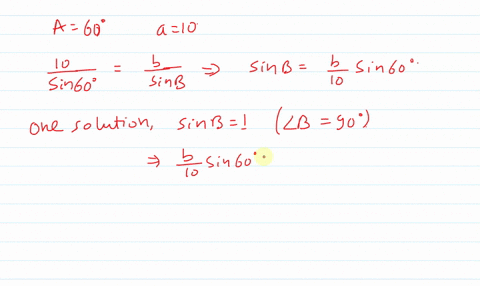 A = 60° a = 10
10/sin60° = b/sinB ⇒ sinB = b/10 sin60°
one solution, sinB = 1 (∠B = 90°)
⇒ b/10 sin60°